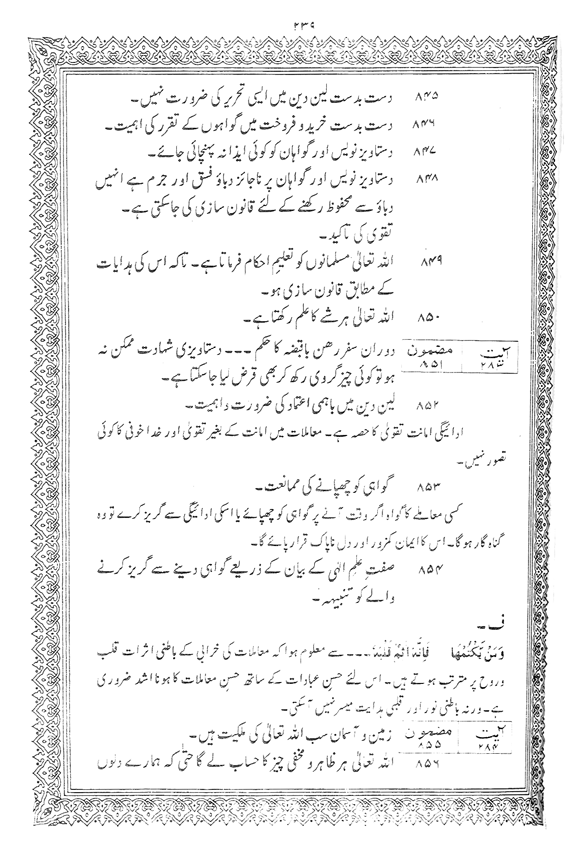 ۲۳۹
۸۴۵ دست بدست لین دین میں ایسی تحریر کی ضرورت نہیں۔
۸۴۶ دست بدست خرید و فروخت میں گواہوں کے تقرر کی اہمیت۔
۸۴۷ دستاویز نویس اور گواہان کو کوئی ایذا نہ پہنچائی جائے۔
۸۴۸ دستاویز نویس اور گواہان پر ناجائز دباؤ فسق اور جرم ہے انہیں
دباؤ سے محفوظ رکھنے کے لئے قانون سازی کی جاسکتی ہے۔
تقویٰ کی تاکید۔
۸۴۹ اللہ تعالیٰ مسلمانوں کو تعلیمِ احکام فرماتا ہے۔ تاکہ اس کی ہدایات
کے مطابق قانون سازی ہو۔
۸۵۰ اللہ تعالیٰ ہر شے کا علم رکھتا ہے۔
آیت ۲۸۳ مضمون ۸۵۱ دوران سفر رھن باقبضہ کا حکم ۔۔۔ دستاویزی شہادت ممکن نہ
ہو تو کوئی چیز گروی رکھ کر بھی قرض لیا جاسکتا ہے۔
۸۵۲ لین دین میں باہمی اعتماد کی ضرورت واہمیت۔
ادائیگی امانت تقویٰ کا حصہ ہے۔ معاملات میں امانت کے بغیر تقویٰ اور خدا خوفی کا کوئی
تصور نہیں۔
۸۵۳ گواہی کو چھپانے کی ممانعت۔
کسی معاملے کا گواہ اگر وقت آنے پر گواہی کو چھپائے یا اسکی ادائیگی سے گریز کرے تو وہ
گناہ گار ہوگا۔ اس کا ایمان کمزور اور دل ناپاک قرار پائے گا۔
۸۵۴ صفتِ علمِ الٰہی کے بیان کے ذریعے گواہی دینے سے گریز کرنے
والے کو تنبیہہ۔
ف۔
وَمَنْ یَّکْتُمْهَا فَاِنَّهٗ اٰثِمٌ قَلْبُهٗ ۔۔۔ سے معلوم ہوا کہ معاملات کی خرابی کے باطنی اثرات قلب
وروح پر مترتب ہوتے ہیں۔ اس لئے حسنِ عبادات کے ساتھ حسنِ معاملات کا ہونا اشد ضروری
ہے۔ ورنہ باطنی نور اور قلبی ہدایت میسر نہیں آسکتی۔
آیت ۲۸۴ مضمون ۸۵۵ زمین و آسمان سب اللہ تعالیٰ کی ملکیت ہیں۔
۸۵۶ اللہ تعالیٰ ہر ظاہر و مخفی چیز کا حساب لے گا حتّٰی کہ ہمارے دلوں